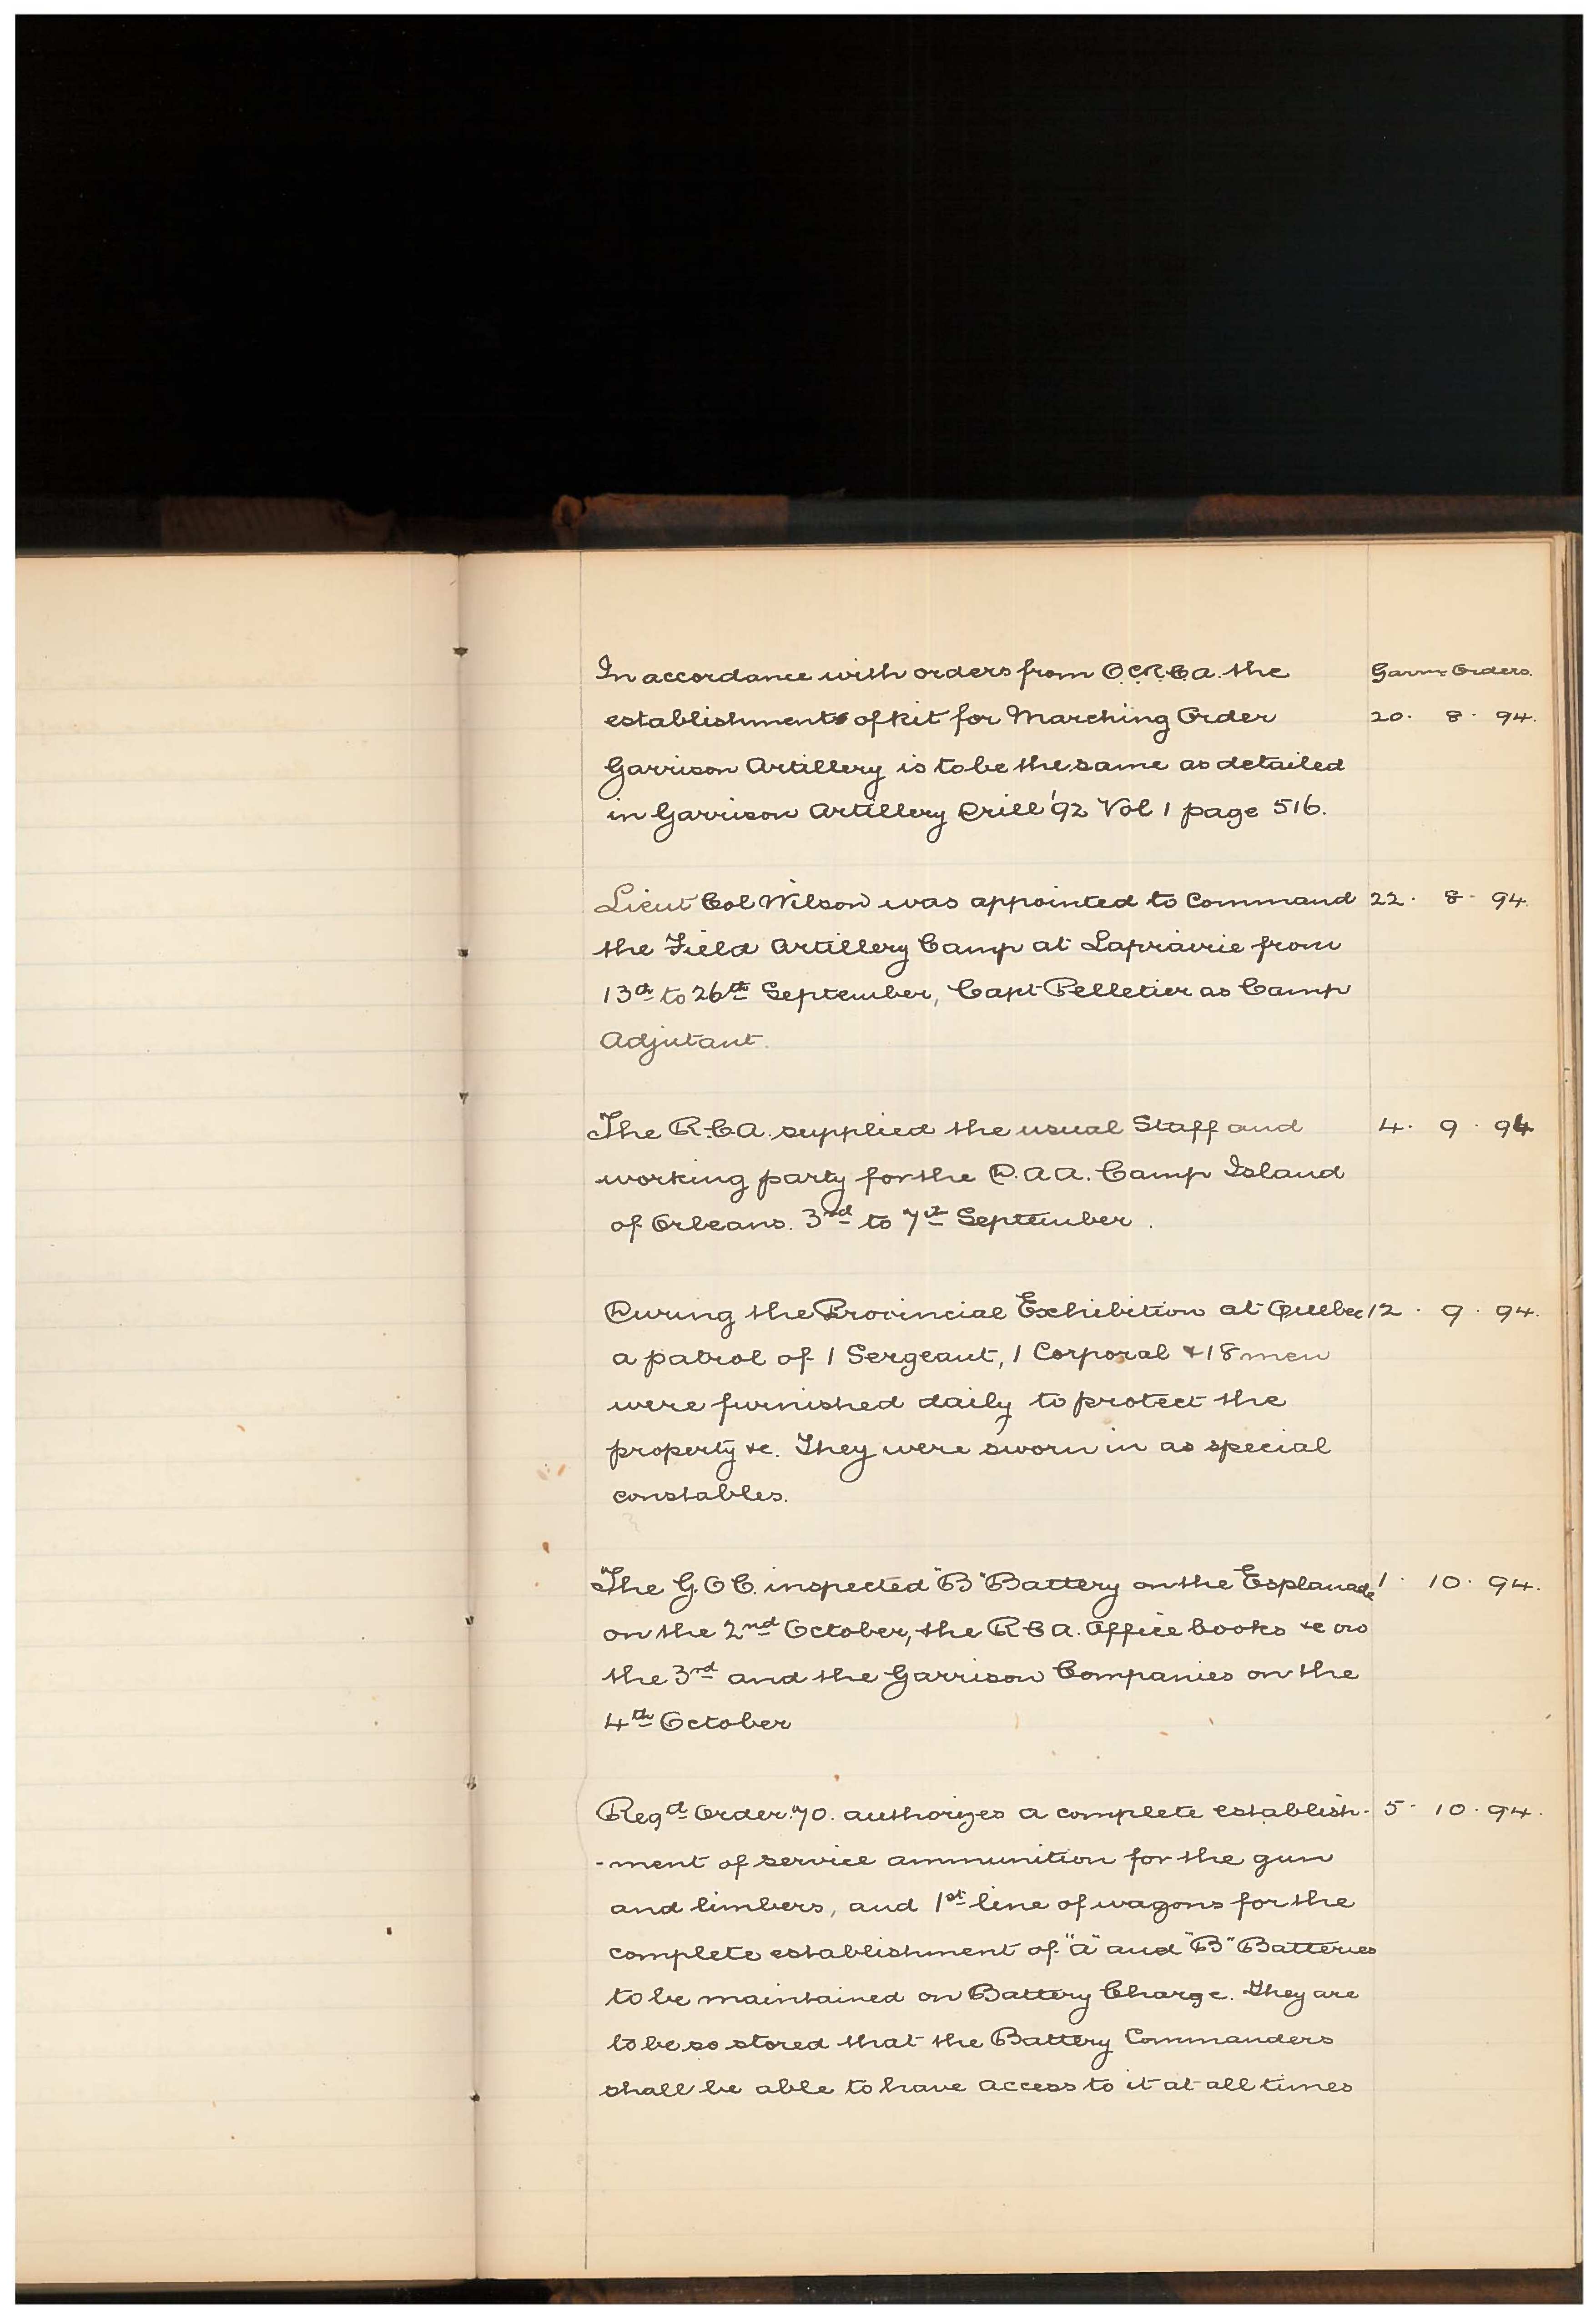 In accordance with orders from O.C.R.C.A. the Garrn Orders.
establishment of kit for Marching Order 20. 8. 94.
Garrison Artillery is to be the same as detailed
in Garrison Artillery Drill '92 Vol 1 page 516.
Lieut Col Wilson was appointed to Command 22. 8. 94.
the Field Artillery Camp at Laprairie from
13th to 26th September, Capt Pelletier as Camp
Adjutant.
The R.C.A. supplied the usual Staff and 4. 9. 94
working party for the D.A.A. Camp Island
of Orleans. 3rd to 7th September.
During the Provincial Exhibition at Quebec 12. 9. 94.
a patrol of 1 Sergeant, 1 Corporal & 18 men
were furnished daily to protect the
property &c. They were sworn in as special
constables.
The G.O.C. inspected "B" Battery on the Esplanade 1. 10. 94.
on the 2nd October, the R.C.A. Office books &c on
the 3rd and the Garrison Companies on the
4th October
Regtl Order 70. authorizes a complete establish- 5. 10. 94.
-ment of service ammunition for the gun
and limbers, and 1st line of wagons for the
complete establishment of "A" and "B" Batteries
to be maintained on Battery Charge. They are
to be so stored that the Battery Commanders
shall be able to have access to it at all times